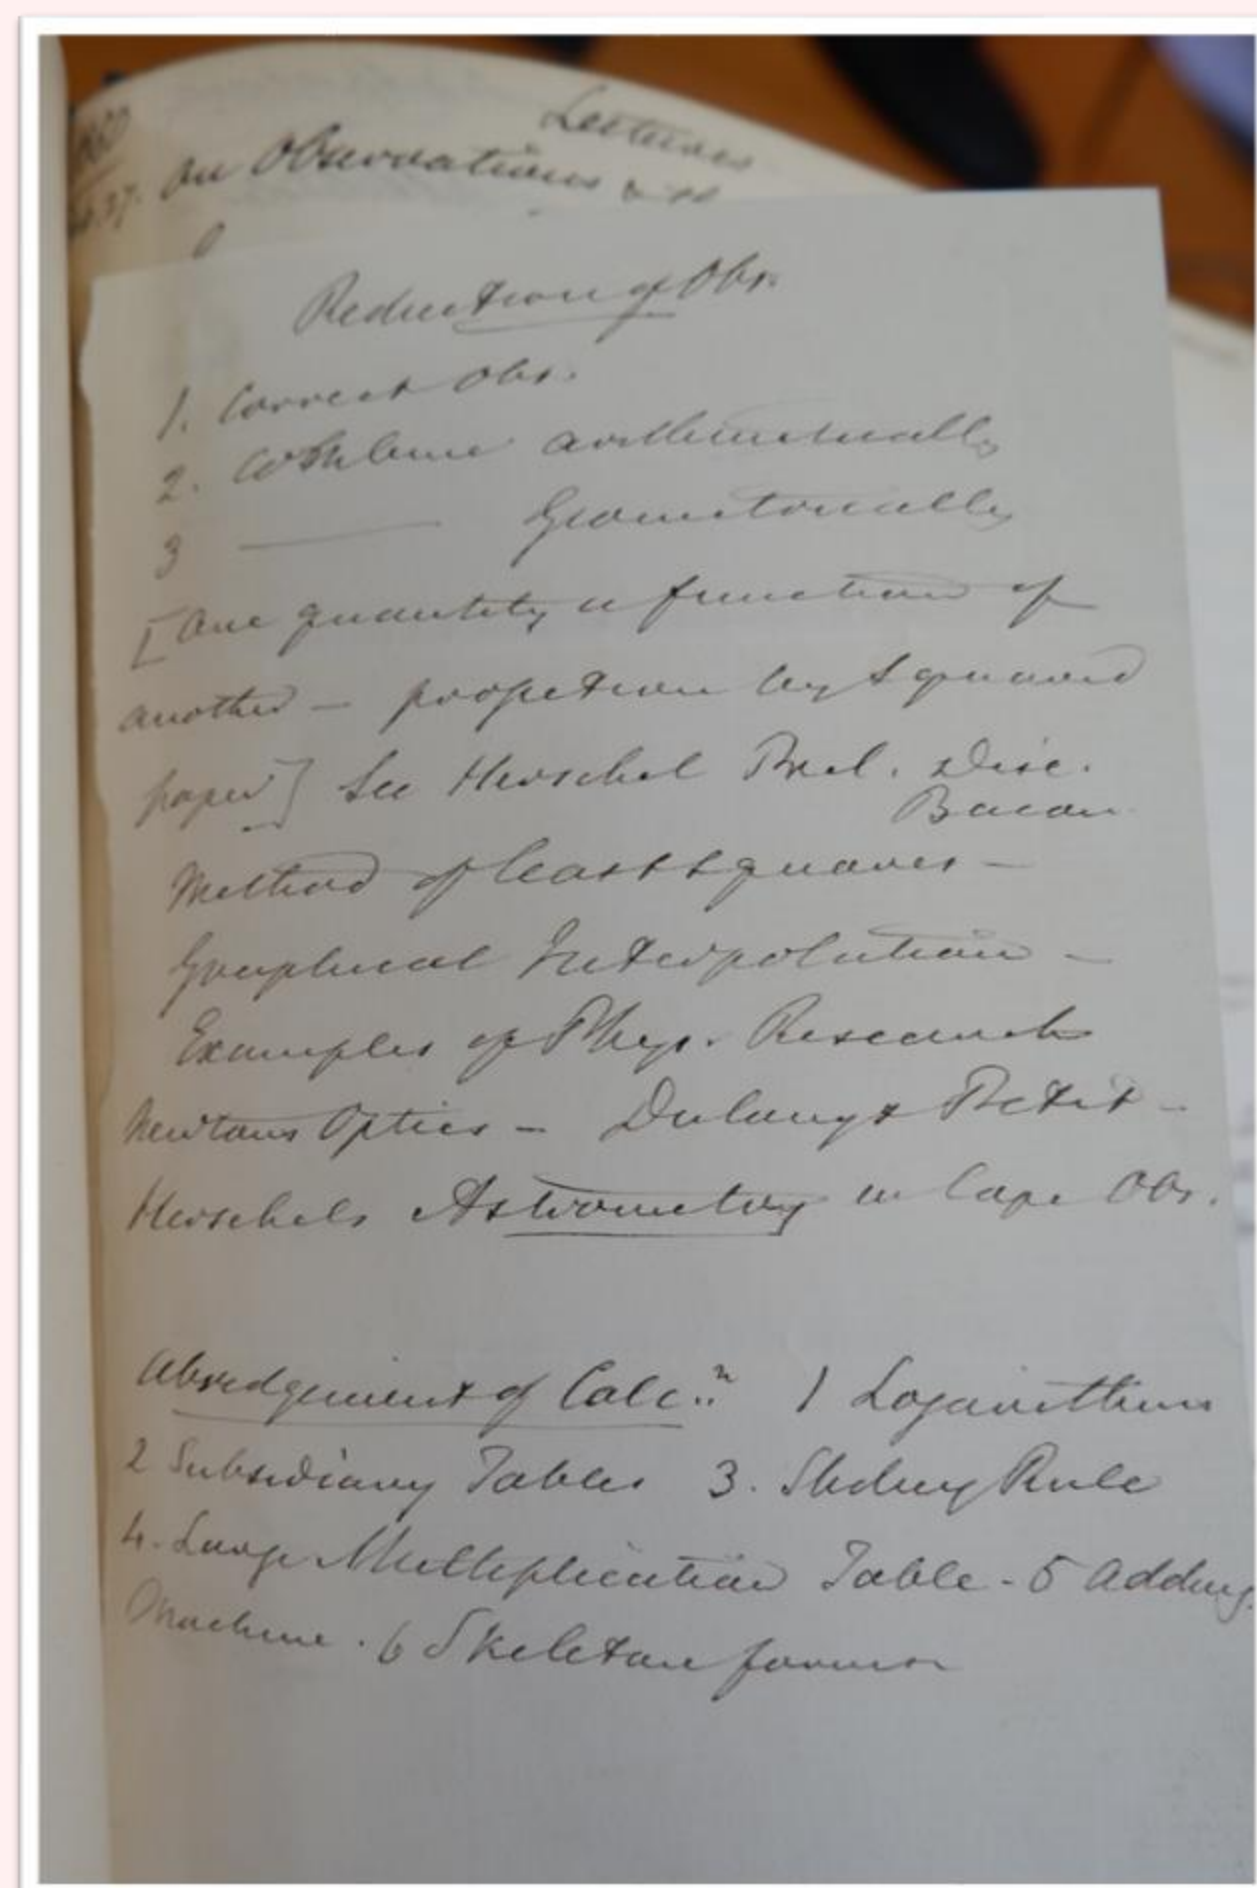 Lectures
On Observations &
Reduction of Obs.
1. Correct Obs.
2. Combine arithmetically
3 —— Geometrically
[One quantity a function of
another — projection by squared
paper] See Herschel Prel. Disc.
Bacon
Method of least squares —
Graphical Interpolation —
Examples of Phys. Research
Newtons Optics — Dulong & Petit —
Herschels Astrometry in Cape Obs.
Abridgement of Calc.n 1 Logarithms
2 Subsidiary Tables 3. Sliding Rule
4. Large Multiplication Table - 5 Adding
Machine. 6 Skeleton forms